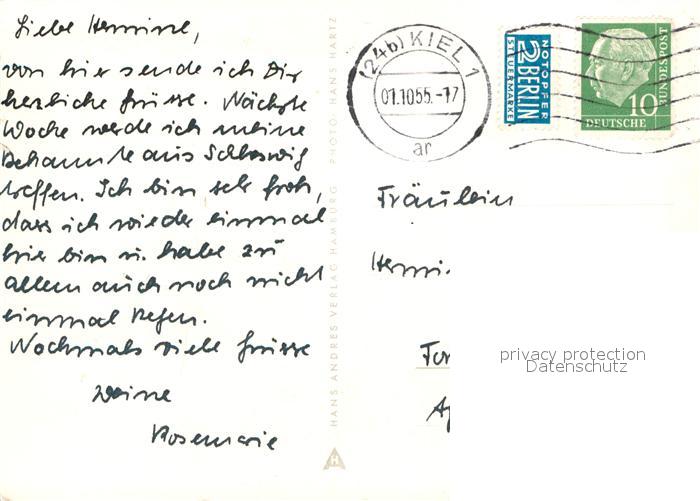 Liebe Hermine,
von hier sende ich Dir
herzliche Grüsse. Nächste
Woche werde ich meine
Bekannte aus Schleswig
treffen. Ich bin sehr froh,
dass ich wieder einmal
hier bin u. habe zu
allem auch noch nicht
einmal Regen.
Nochmals viele Grüsse
Deine
Rosemarie
HANS ANDRES VERLAG HAMBURG PHOTO: HANS HARTZ
H
(24b) KIEL 1
01.10.55.-17
ar
NOTOPFER
2 BERLIN
STEUERMARKE
10
DEUTSCHE
BUNDESPOST
Fräulein
Hermi.
privacy protection
Datenschutz